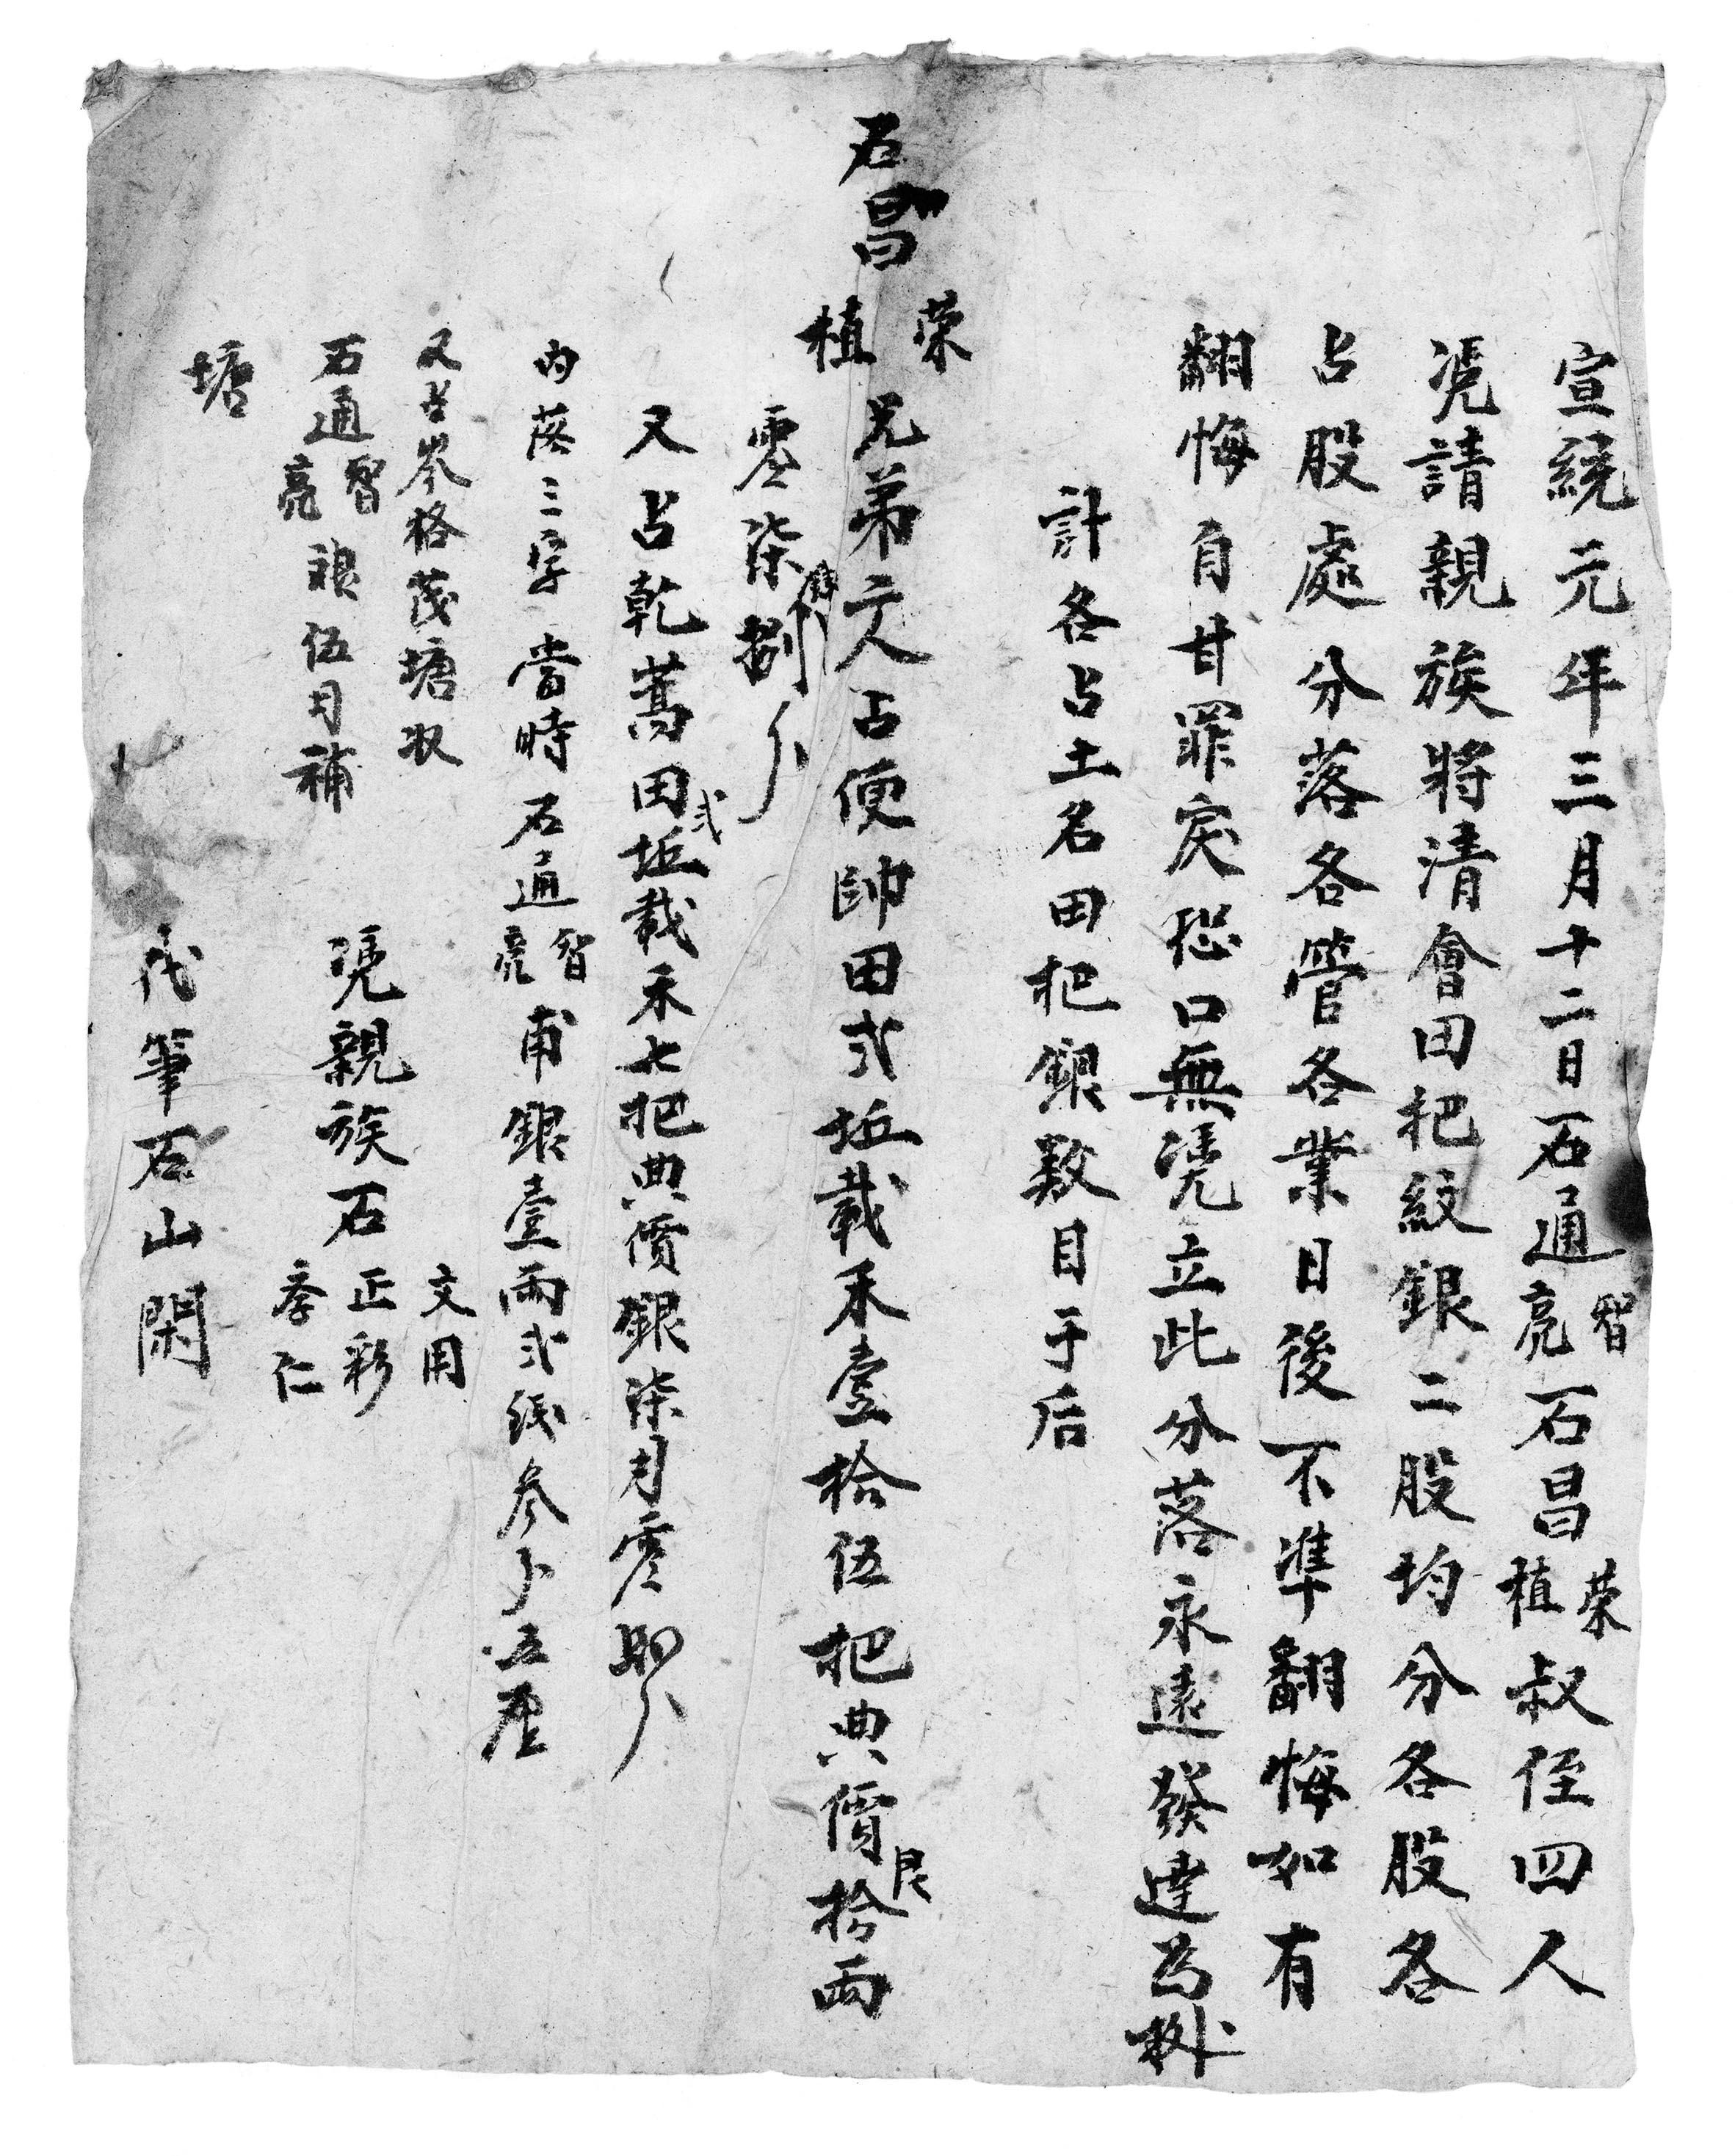 宣統元年三月十二日石通智亮石昌荣植叔侄四人
凴請親族將清會田把紋銀二股均分各股各
占股處分落各管各業日後不準翻悔如有
翻悔自甘罪戾恐口無凴立此分落永遠發達為㨿
計各占土名田把銀数目于后
石昌荣植兄弟二人占便帥田弍坵載禾壹拾伍把典價艮拾両
零柒捌卜
又占乾蒿田弍坵載禾七把典價銀柒月零卜
内落三字當時石通智亮甫銀壹両弍錢叁卜五厘
又占岑格茂塘収
石通智亮 伍月補
塘
凴親族石文用正彩孝仁
代筆石山閑